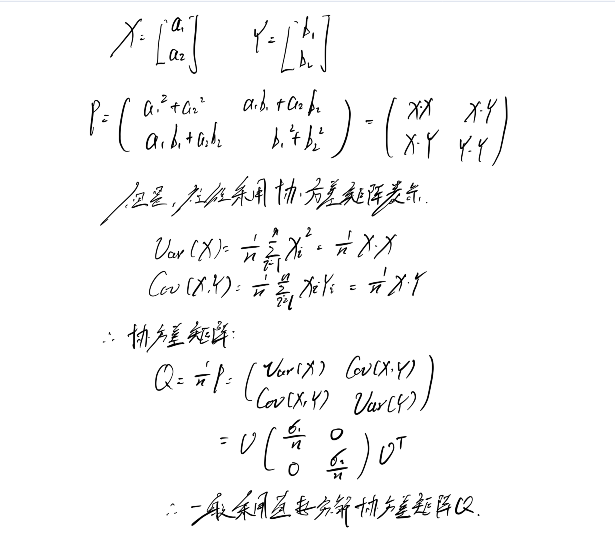 X = [a₁ a₂] Y = [b₁ b₂]
P = (a₁²+a₂² a₁b₁+a₂b₂ a₁b₁+a₂b₂ b₁²+b₂²) = (X·X X·Y X·Y Y·Y)
但是, 采用协方差矩阵表示.
Var(X) = 1/n ∑ᵢ₌₁ⁿ Xᵢ² = 1/n X·X
Cov(X,Y) = 1/n ∑ᵢ₌₁ⁿ XᵢYᵢ = 1/n X·Y
∴ 协方差矩阵:
Q = 1/n P = (Var(X) Cov(X,Y) Cov(X,Y) Var(Y))
= U (σ₁/n 0 0 σ₂/n) Uᵀ
∴ 一般采用直接分解协方差矩阵Q.